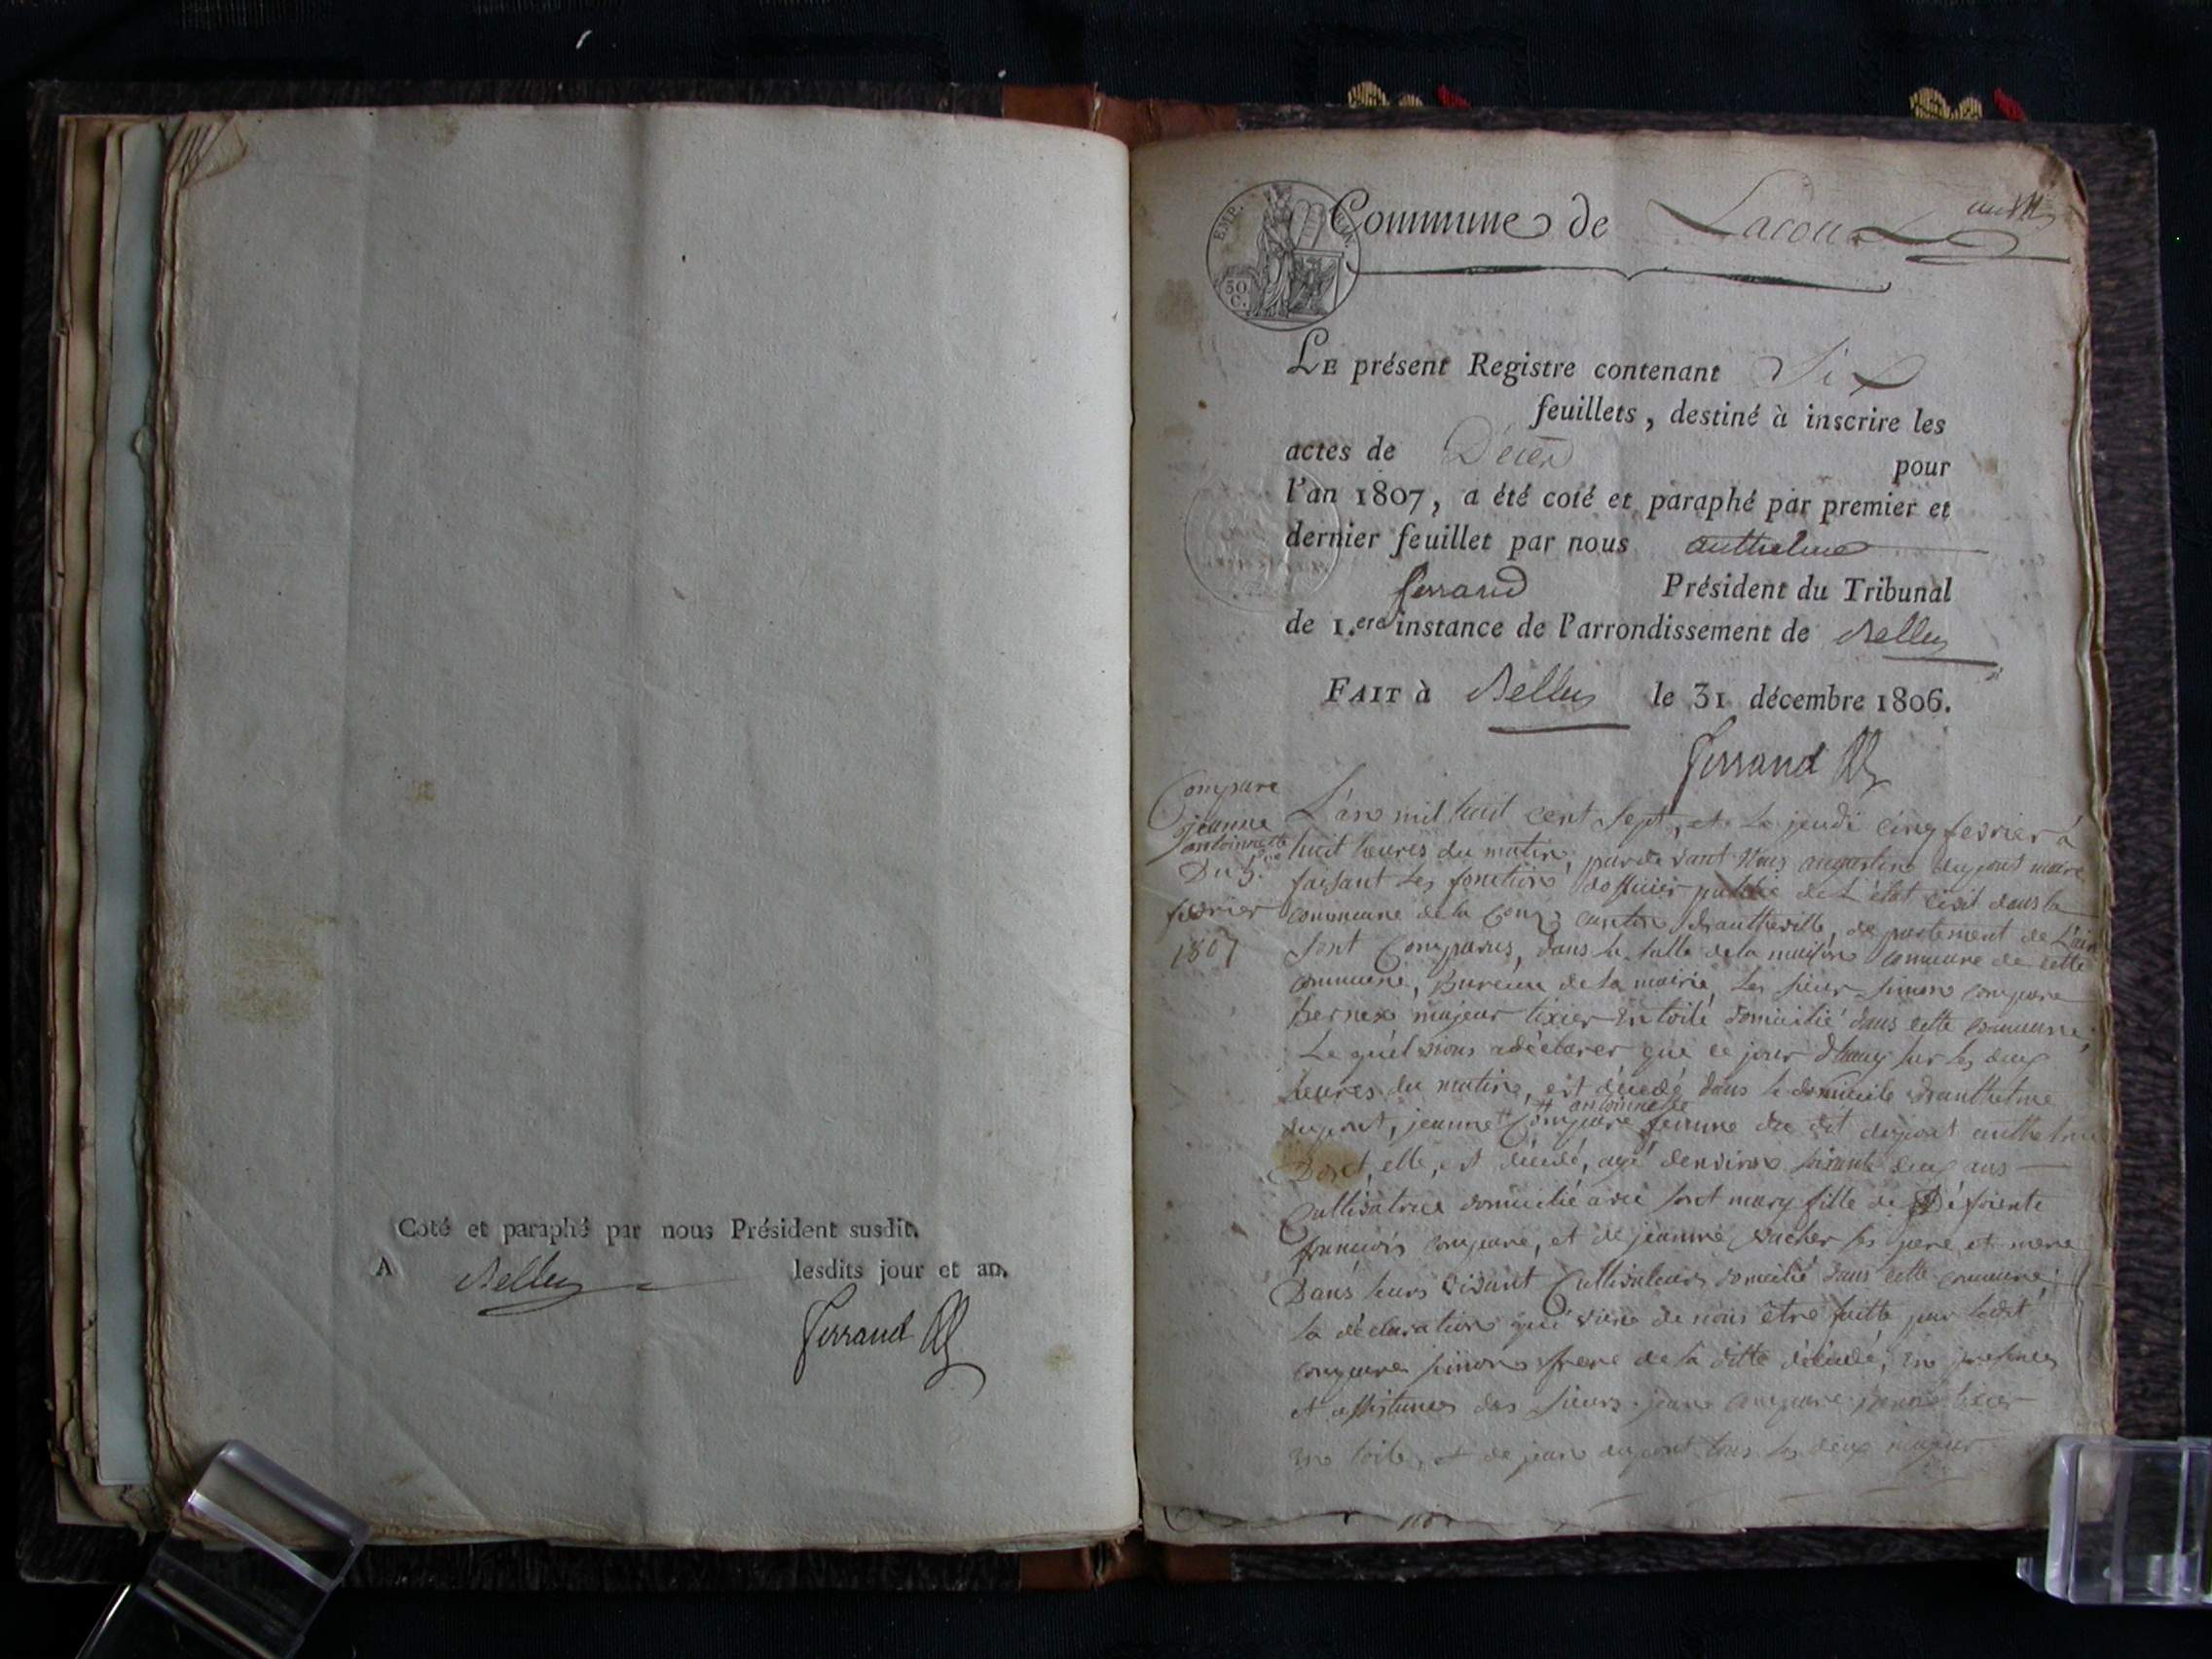 Coté et paraphé par nous Président susdit.
A Belley lesdits jour et an.
Ferrand
EMP.
50
C.
Commune de Lacoux
LE présent Registre contenant Six
feuillets, destiné à inscrire les
actes de Décès pour
l'an 1807, a été coté et paraphé par premier et
dernier feuillet par nous anthelme
ferrand Président du Tribunal
de 1.ere instance de l'arrondissement de Belley
FAIT à Belley le 31 décembre 1806.
Ferrand
Compare
jeanne
antoinette
Du 5.
fevrier
1807
L'an mil huit cent Sept, et Le jeudi cinq fevrier à
huit heures du matin, pardevant Nous augustin dujout maire
faisant les fonction d'officier public de L'état civil dans la
commune de la Coux canton d'hautheville, departement de L'ain
Sont Comparus, dans la salle de la maison commune de cette
commune, Bureau de la mairie, Les sieur simon compare
bernex majeur tixier En toile domicilié dans cette commune,
Le quel vions a déclarer que ce jour dhuuy sur les deux
heures du matin, est décedé dans le domicile d'anthelme
dujout, jeanne antoinette Compare femme du dit dujout anthelme
Dont, elle, est décedé, agé denviron soixante deux ans
Cultivatrice domicilié avec sont mary fille de Défointe
francois compare, et de jeanne vacher ses pere et mere
Dans leurs vivant Cultivateurs domicilié dans cette commune
la déclaration qui vien de nous être faitte par ledit
compare simon frere de la ditte décedé, En presence
et assistance des sieurs jean compare tixier
En toile, et de jean dujout tous les deux majeur